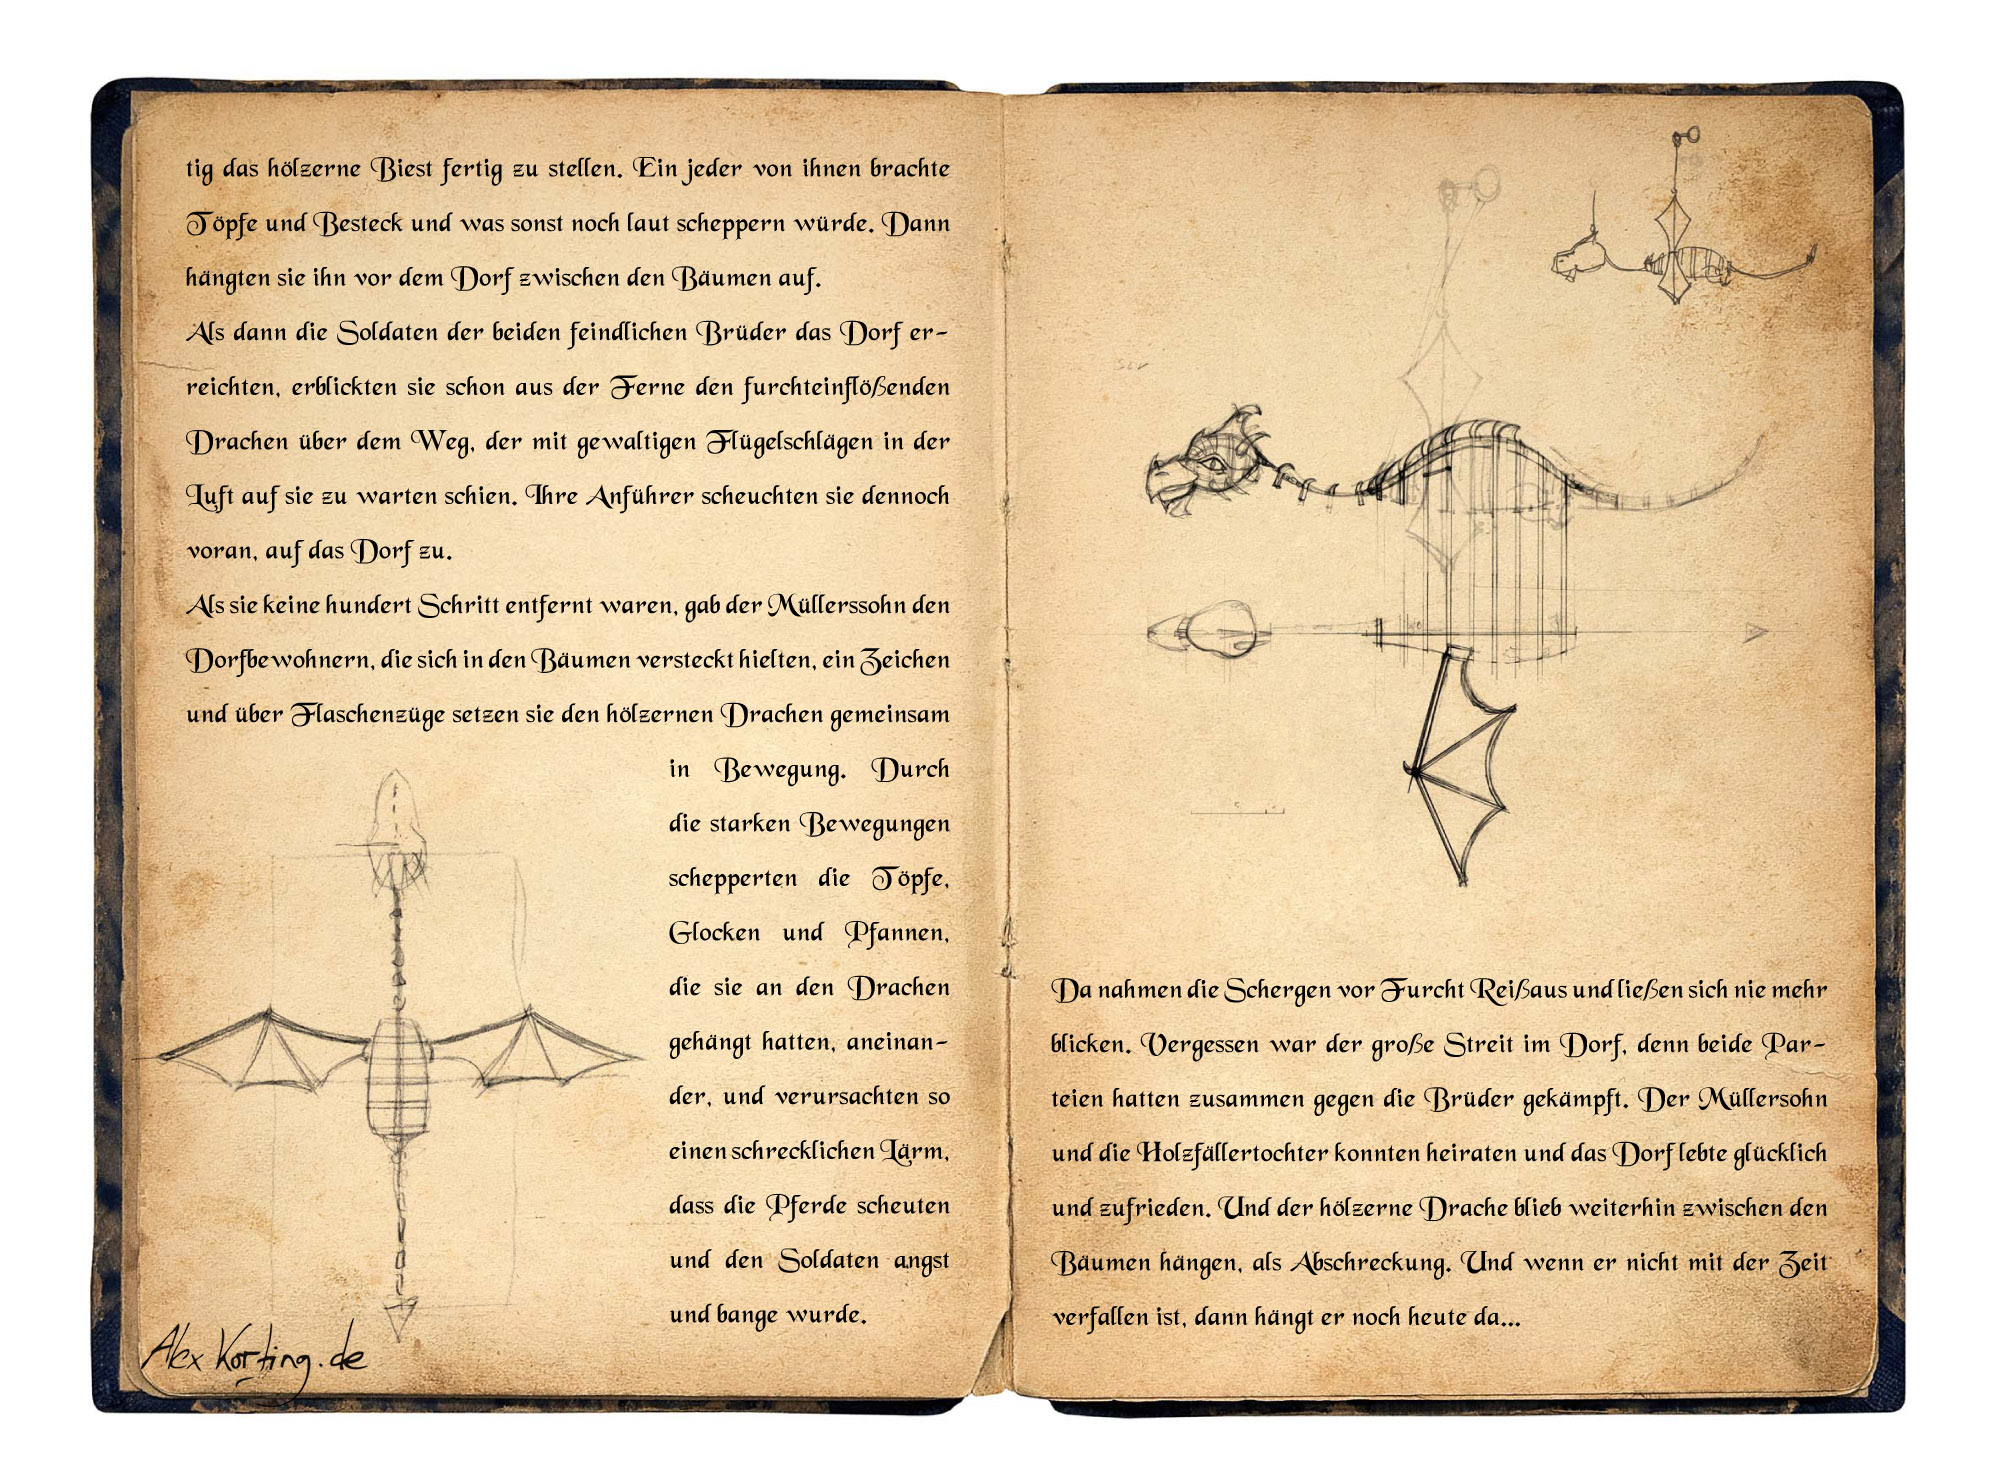 tig das hölzerne Biest fertig zu stellen. Ein jeder von ihnen brachte
Töpfe und Besteck und was sonst noch laut scheppern würde. Dann
hängten sie ihn vor dem Dorf zwischen den Bäumen auf.
Als dann die Soldaten der beiden feindlichen Brüder das Dorf er-
reichten, erblickten sie schon aus der Ferne den furchteinflößenden
Drachen über dem Weg, der mit gewaltigen Flügelschlägen in der
Luft auf sie zu warten schien. Ihre Anführer scheuchten sie dennoch
voran, auf das Dorf zu.
Als sie keine hundert Schritt entfernt waren, gab der Müllerssohn den
Dorfbewohnern, die sich in den Bäumen versteckt hielten, ein Zeichen
und über Flaschenzüge setzen sie den hölzernen Drachen gemeinsam
in Bewegung. Durch
die starken Bewegungen
schepperten die Töpfe,
Glocken und Pfannen,
die sie an den Drachen
gehängt hatten, aneinan-
der, und verursachten so
einen schrecklichen Lärm,
dass die Pferde scheuten
und den Soldaten angst
und bange wurde.
Alex Korting.de
Da nahmen die Schergen vor Furcht Reißaus und ließen sich nie mehr
blicken. Vergessen war der große Streit im Dorf, denn beide Par-
teien hatten zusammen gegen die Brüder gekämpft. Der Müllersohn
und die Holzfällertochter konnten heiraten und das Dorf lebte glücklich
und zufrieden. Und der hölzerne Drache blieb weiterhin zwischen den
Bäumen hängen, als Abschreckung. Und wenn er nicht mit der Zeit
verfallen ist, dann hängt er noch heute da...